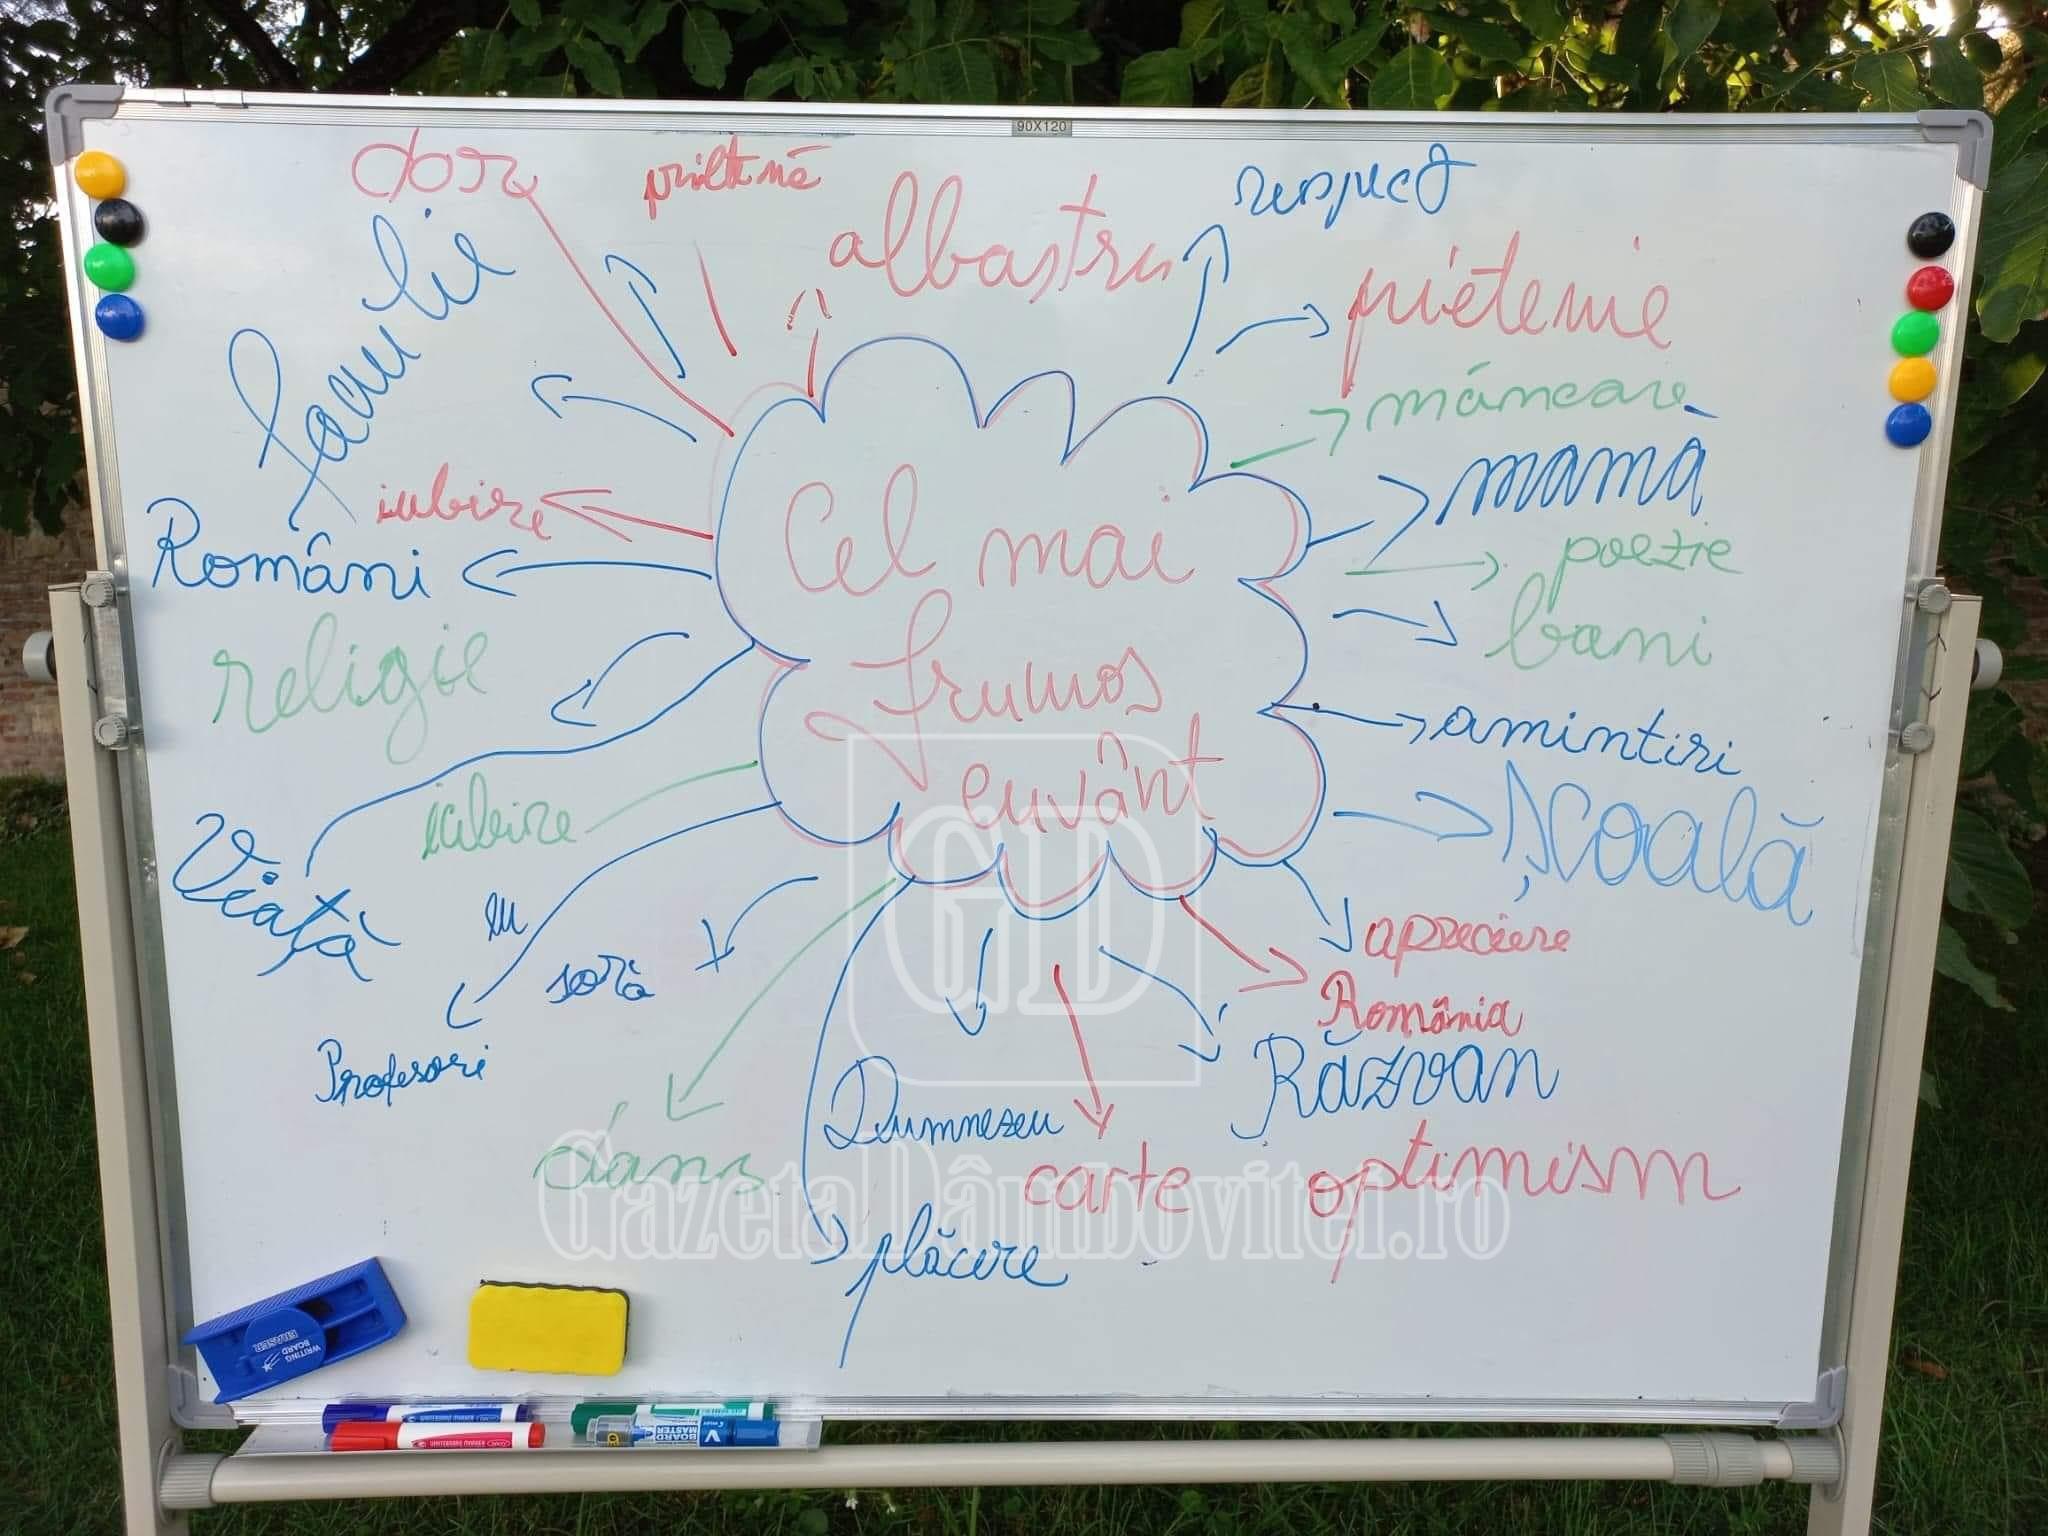 90X120
dor
albastru
respect
familie
prietenie
mâncare
mamă
iubire
Cel mai
frumos
cuvânt
Români
poezie
bani
religie
amintiri
Viață
iubire
Școală
eu
soră
apreciere
România
Profesori
Răzvan
Dumnezeu
dans
carte
optimism
plăcere
GD
GazetaDâmboviței.ro
WRITING
BOARD
ERASER
V BOARD
MASTER